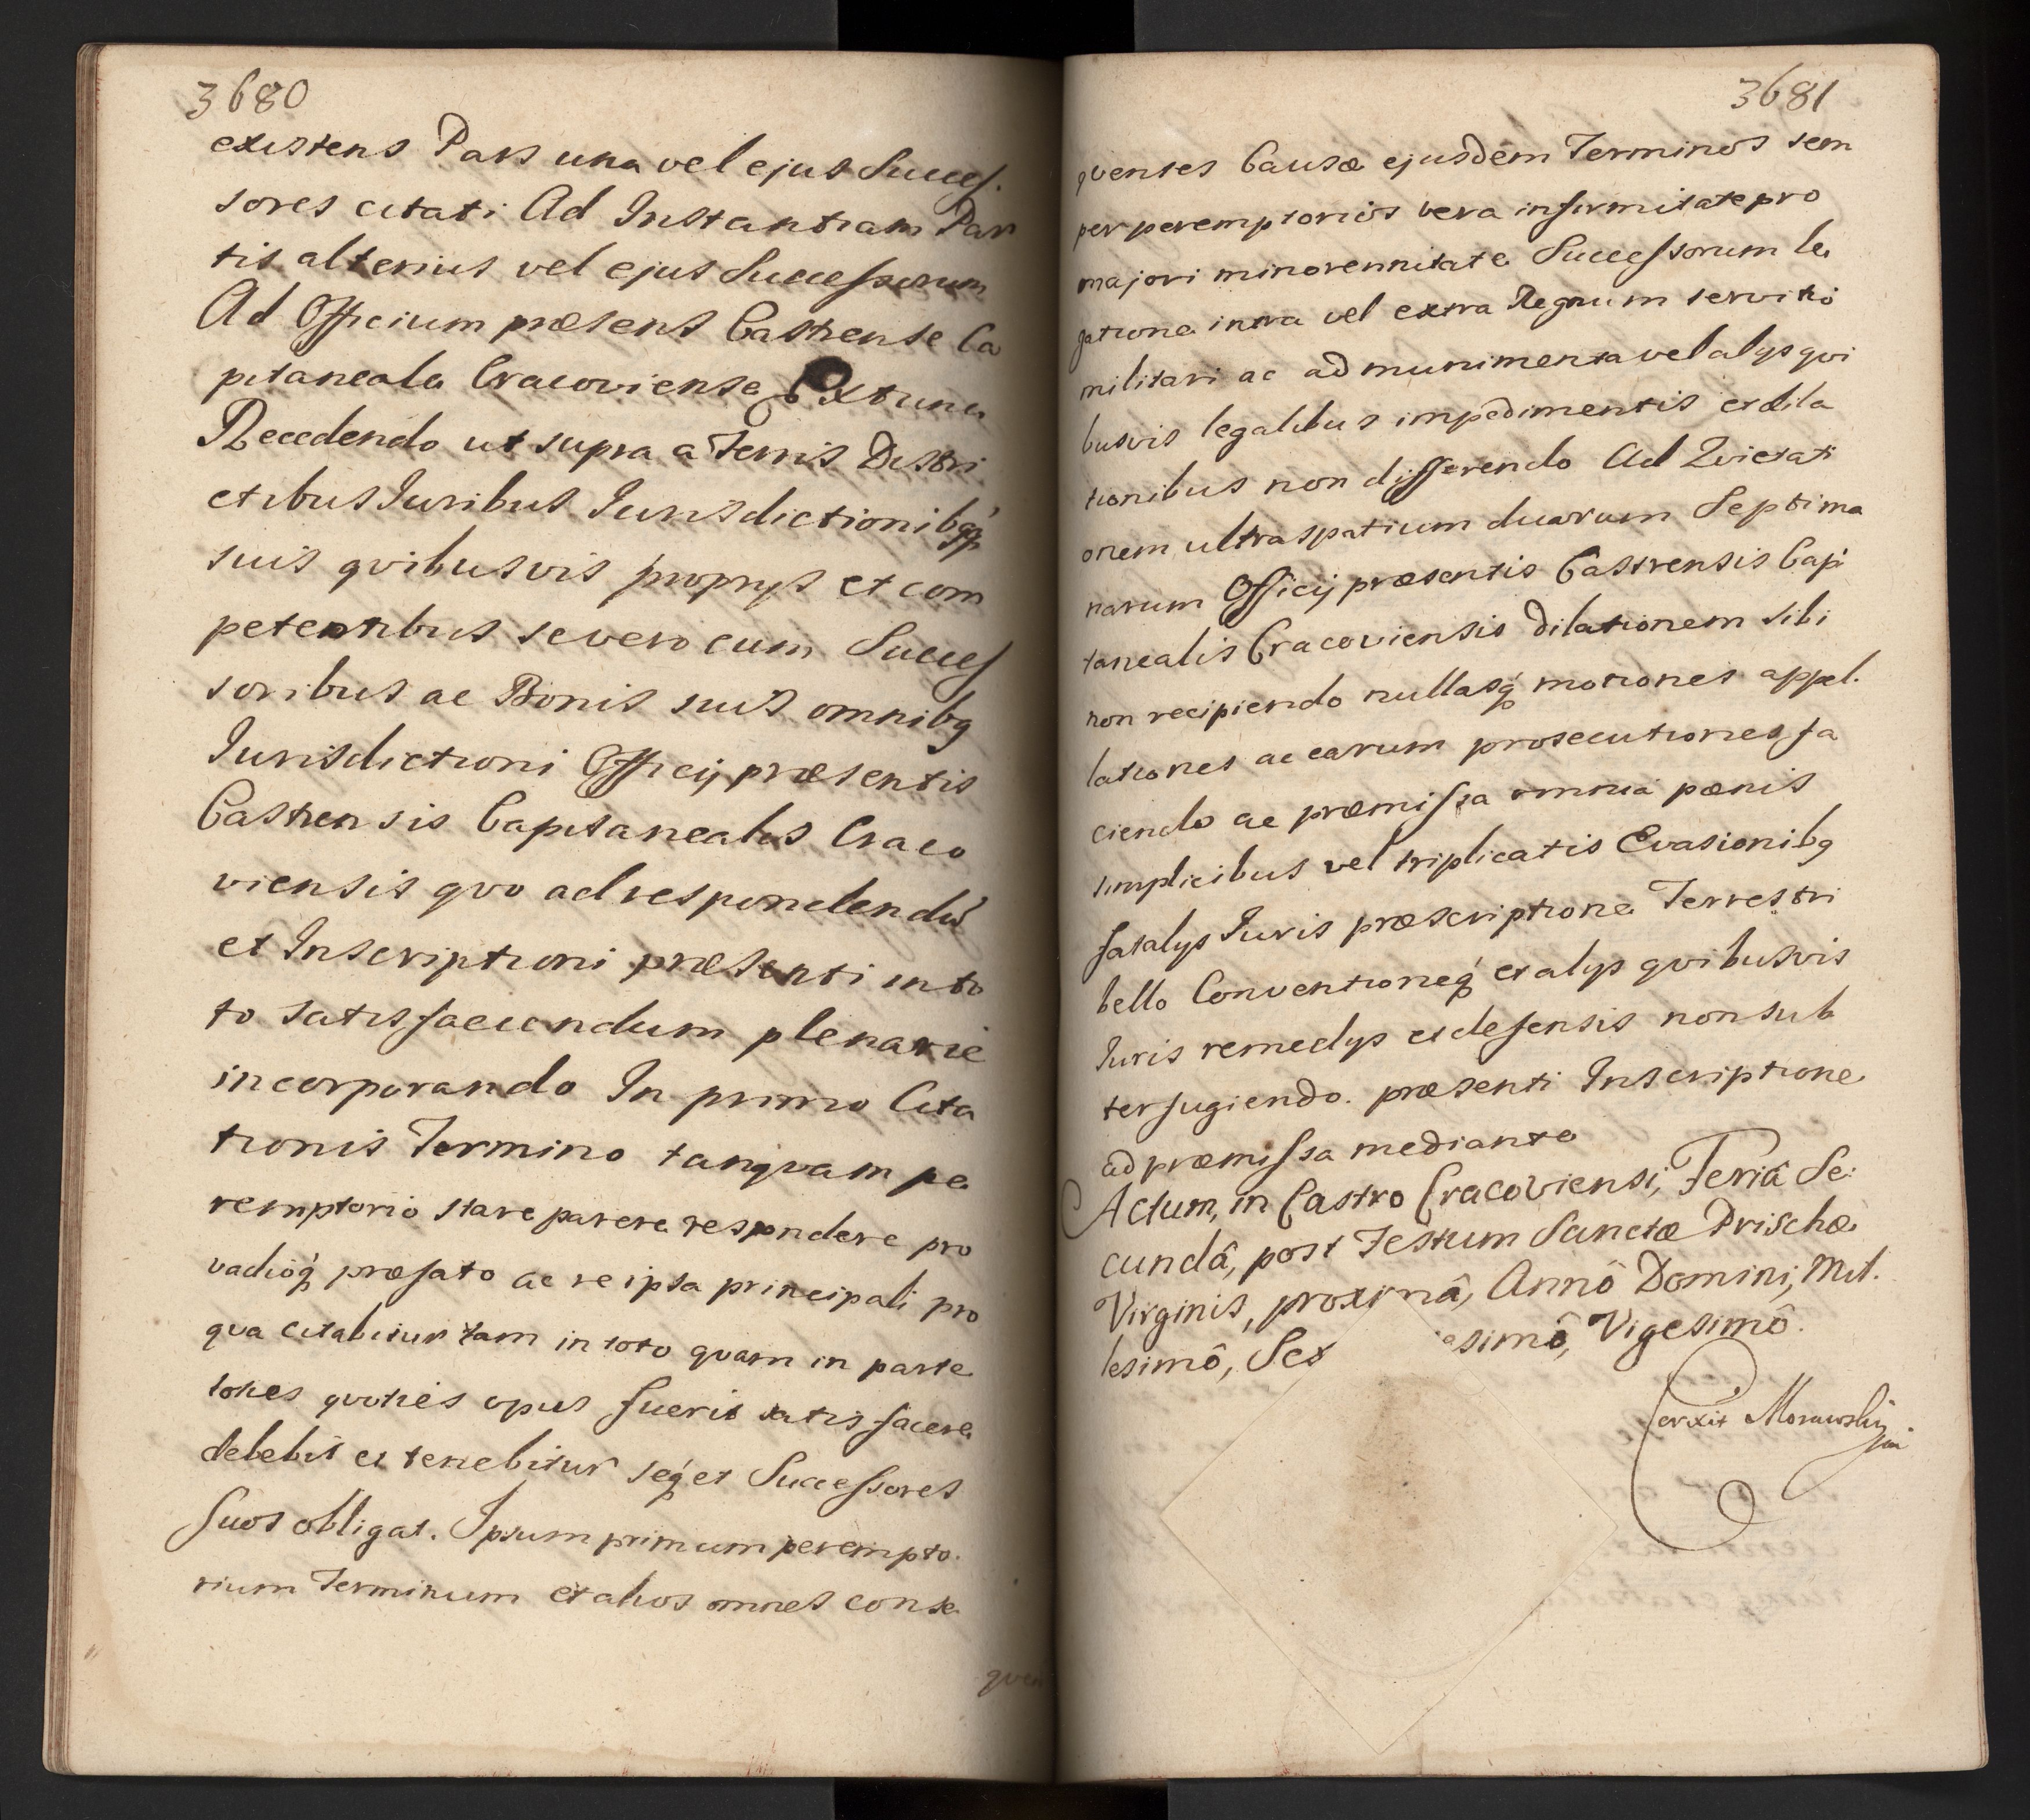 3680
existens Pars una vel ejus Succes.
sores citati Ad Instantiam Par
tis alterius vel ejus Successorum
Ad Officium præsens Castrense Ca
pitaneale Cracoviense Extunc
Recedendo ut supra a Terris Distri
ctibus Iuribus Iurisdictionibqȝ
suis qvibusvis proprys et com
petentibus se vero cum Succes
soribus ac Bonis suis omnibq
Iurisdictioni Officij præsentis
Castrensis Capitanealis Craco
viensis qvo ad respondendū
et Inscriptioni præsenti in to
to satisfaciendum plenarie
incorporando In primo Cita
tionis Termino tanqvam pe
remptorio stare parere respondere pro
vadioq́ præfato ac re ipsa principali pro
qva citabitur tam in toto qvam in parte
toties qvoties opus fuerit satisfacere
debebit et tenebitur seq́ et Successores
suos obligat. Ipsum primum perempto.
rium Terminum et alios omnes conse
qven
3681
qventes Causæ ejusdem Terminos sem
per peremptorios vera infirmitate pro
majori minorennitate Successorum le
gatione intra vel extra Regnum servitio
militari ac ad munimenta vel alys qvi
busvis legalibus impedimentis et dila
tionibus non differendo Ad Qvietati
onem ultra spatium duarum Septima
narum Officij præsentis Castrensis Capi
tanealis Cracoviensis dilationem sibi
non recipiendo nullasq́ motiones appel.
lationes ac earum prosecutiones fa
ciendo ac præmissa omnia pænis
simplicibus vel triplicatis Evasionibq
fatalys Iuris præscriptione Terrestri
bello Conventioneq́ et alys qvibusvis
Iuris remedys et defensis non sub
terfugiendo. præsenti Inscriptione
ad præmissa mediante
Actum, in Castro Cracoviensi, Feriâ Se:
cundâ, post Festum Sanctæ Prischæ
Virginis, proximâ, Annô Domini, Mil.
lesimô, Sex esimô, Vigesimô.
Corxit Morawski